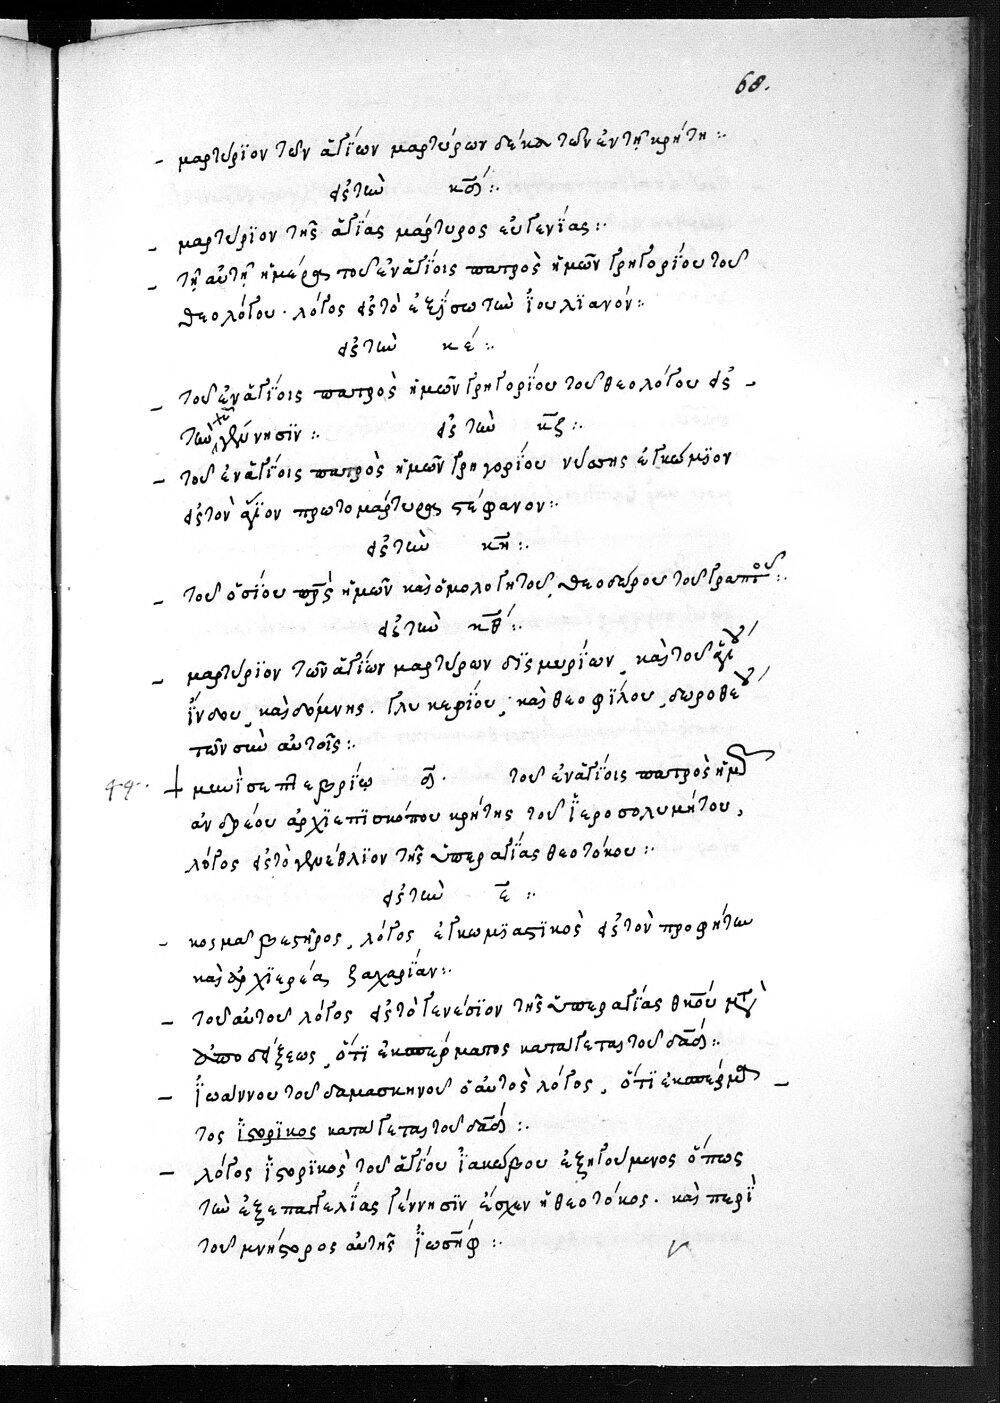 68.
- μαρτύρϊον τῶν ἁγΐων μαρτύρων δέκα τῶν ἐν τῆ κρήτη :.
εἰς τὼ κδ΄ :.
- μαρτύρϊον τῆς ἁγΐας μάρτυρος εὐγενΐας :.
- τῆ αὐτῆ ἡμέρα τοῦ ἐν ἁγΐοις πατρὸς ἡμῶν γρηγορΐου τοῦ
θεολόγου . λόγος εἰς τὸ ἐξΐσωτὼν ἰουλϊανόν :.
εἰς τὼ κέ :.
- τοῦ ἐν ἁγΐοις πατρὸς ἡμῶν γρηγορΐου τοῦ θεολόγου εἰς -
τὼ χῦ γέννησϊν :. εἰς τὼ κζ :.
- τοῦ ἐν ἁγΐοις πατρὸς ἡμῶν γρηγορΐου νύσσης ἐγκώμϊον
εἰς τὸν ἅγϊον πρωτομάρτυρα στέφανον :.
εἰς τὼ κη :.
- τοῦ ὁσΐου πρς ἡμῶν καὶ ὁμολογητοῦ, θεοδώρου τοῦ γραπτοῦ :.
εἰς τὼ κθ΄ :.
- μαρτύρϊον τῶν ἁγΐων μαρτύρων δϊς μυρΐων , καὶ τοῦ ἁγΐου
ΐνδου , καὶ δόμνης . γλυκερΐου , καὶ θεοφΐλου , δωροθέου
τῶν σὺν αὐτοῖς :.
44. + μηνὶ σεπτεβρΐω δ . τοῦ ἐν ἁγΐοις πατρὸς ἡμῶν
ἀνδρέου ἀρχϊεπϊσκόπου κρήτης τοῦ ϊεροσολυμήτου ,
λόγος εἰς τὸ γενέθλϊον τῆς ὑπεραγΐας θεοτόκου :.
εἰς τὼ ε :.
- κοσμᾶ βεστῆρος , λόγος ἐγκωμϊαστϊκὸς εἰς τὸν προφήτην
καὶ ἀρχϊερέα ζαχαρΐαν :.
- τοῦ αὐτοῦ λόγος εἰς τὸ γενέσϊον τῆς ὑπεραγΐας θκου μετὰ
ἀποδείξεως , ὅτϊ ἐκ σπέρματος κατάγεται τοῦ δαδ :.
- ϊωάννου τοῦ δαμασκηνοῦ ὁ αὐτὸς λόγος , ὅτϊ ἐκ σπέρμα -
τος ϊστορϊκος κατάγεται τοῦ δαδ :.
- λόγος ϊστορϊκὸς τοῦ ἁγΐου ϊακώβου ἐξηγούμενος ὅπως
τὼν ἐξ ἐπαγγελΐας γέννησϊν ἔσχεν ἡ θεοτόκος . καὶ περὶ
τοῦ μνήστορος αὐτῆς ϊωσὴφ :.